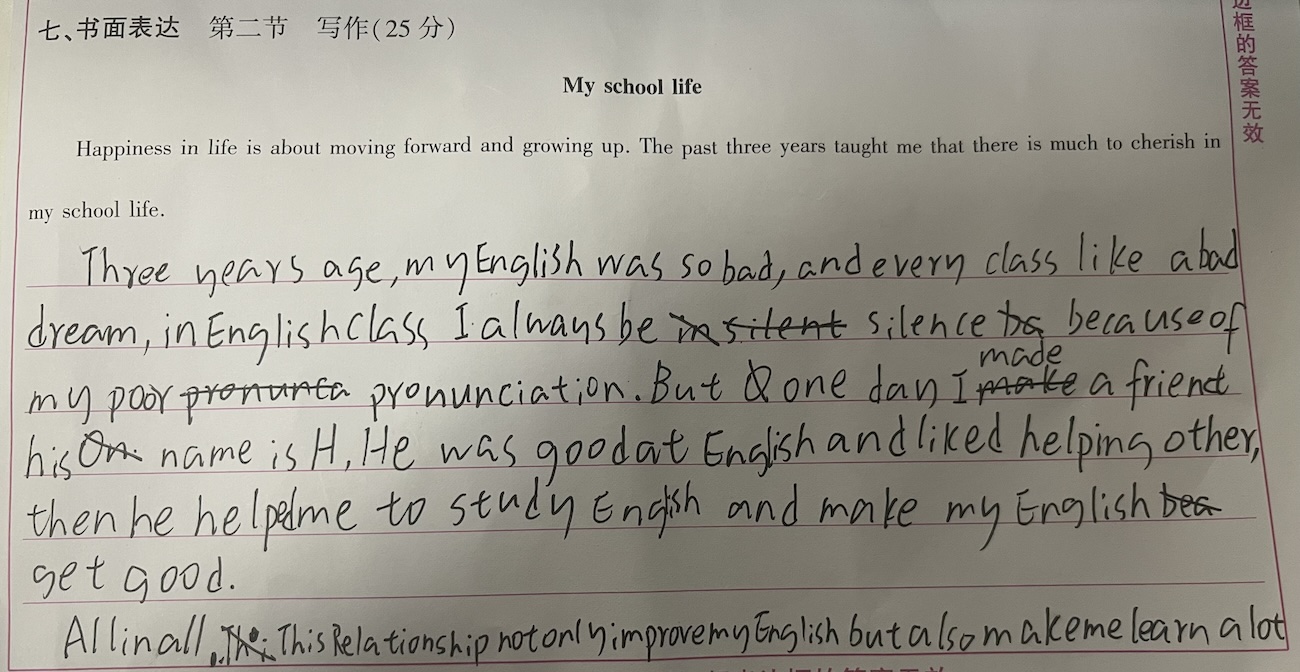 七、书面表达 第二节 写作(25分)
边框的答案无效
My school life
Happiness in life is about moving forward and growing up. The past three years taught me that there is much to cherish in
my school life.
Three years age, my English was so bad, and every class like a bad
dream, in English class I always be silence because of
my poor pronunciation. But one day I made a friend
his name is H, He was good at English and liked helping other,
then he helped me to study English and make my English
get good.
All in all, This Relationship not only improve my English but also make me learn a lot